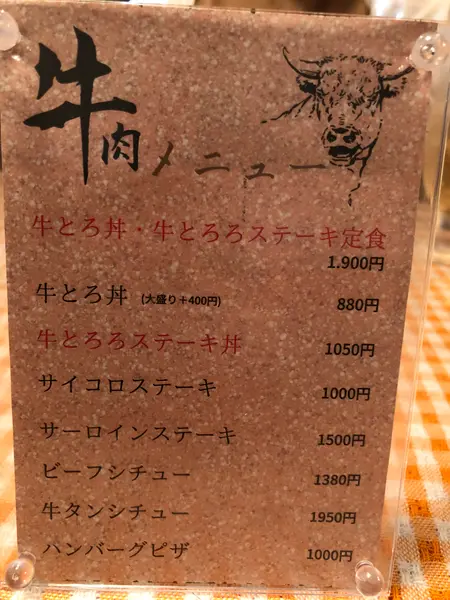 牛肉メニュー
牛とろ丼・牛とろろステーキ定食
1.900円
牛とろ丼 (大盛り+400円) 880円
牛とろろステーキ丼 1050円
サイコロステーキ 1000円
サーロインステーキ 1500円
ビーフシチュー 1380円
牛タンシチュー 1950円
ハンバーグピザ 1000円